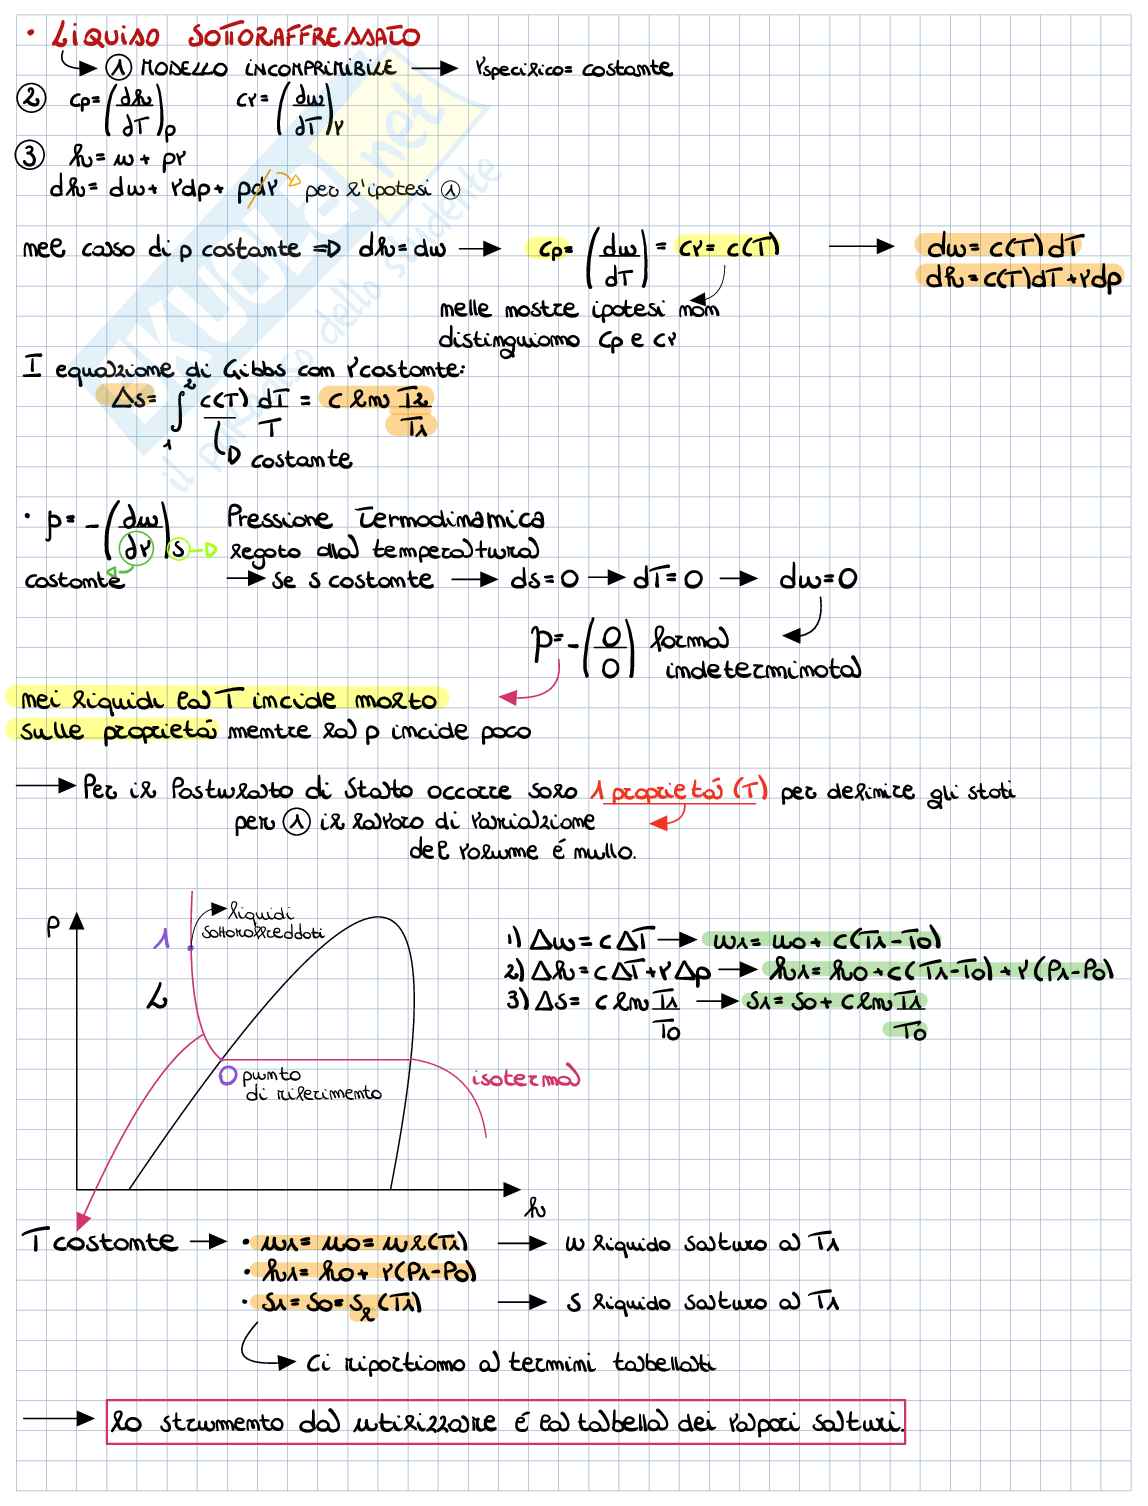 • LIQUISO SOTTORAFFRESSATO
① MODELLO INCOMPRIMIBILE → vspecifico= costante
② cp= (dh/dT)p cv= (du/dT)v
③ h= u + pv
dh= du+ vdp+ pdv per l'ipotesi ①
nel caso di p costante ⇒ dh= du → cp= (du/dT) = cv= c(T) → du= c(T) dT
dh= c(T)dT+vdp
nelle nostre ipotesi non
distinguiamo cp e cv
I equazione di Gibbs con v costante:
Δs= ∫₁² c(T) dT/T = c ln T2/T1
costante
• p= -(du/dv)s Pressione Termodinamica
legato alla temperatura
costante → se s costante → ds=0 → dT=0 → du=0
p= -(0/0) forma
indeterminata
nei liquidi la T incide molto
sulle proprietá mentre la p incide poco
→ Per il Postulato di Stato occorre solo 1 proprietá (T) per definire gli stati
per ① il lavoro di variazione
del volume é nullo.
p
liquidi
sottoraffreddati
1
L
0 punto
di riferimento
isoterma
h
1) Δu= cΔT → u1= u0+ c(T1-T0)
2) Δh= cΔT+vΔp → h1= h0+c(T1-T0)+v(P1-P0)
3) Δs= c ln T1/T0 → s1= s0+ c ln T1/T0
T costante → • u1= u0= ul(T1) → u liquido saturo a T1
• h1= h0+ v(P1-P0)
• s1= s0= sl(T1) → s liquido saturo a T1
Ci riportiamo a termini tabellati
→ lo strumento da utilizzare é la tabella dei vapori saturi.